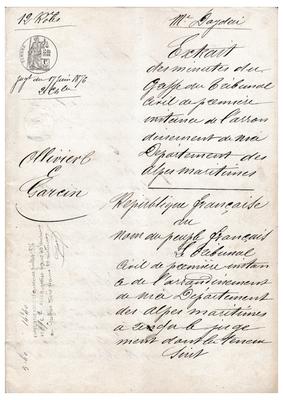 12 Rôles
Me
jugt du 17 juin 1876
Ollivier
&
Garcin
Extrait
des minutes du
Greffe du Tribunal
Civil de première
instance de l'arron
dissement de Nice
Département des
Alpes maritimes
République française
au
Nom du peuple français
Le Tribunal
Civil de première instan
ce de l'arrondissement
de Nice Département
des Alpes maritimes
a rendu le juge
ment dont la teneur
suit